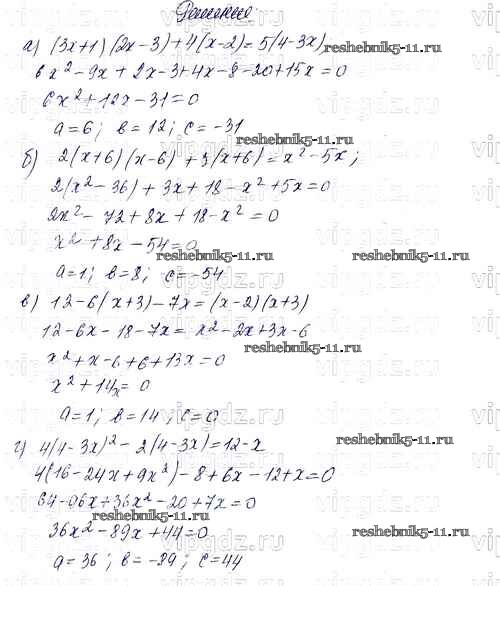 Решение:
а) (3x+1)(2x-3)+4(x-2)=5(4-3x)
6x²-9x+2x-3+4x-8-20+15x=0
6x²+12x-31=0
a=6; в=12; c=-31
reshebnik5-11.ru
б) 2(x+6)(x-6)+3(x+6)=x²-5x;
2(x²-36)+3x+18-x²+5x=0
2x²-72+8x+18-x²=0
x²+8x-54=0
reshebnik5-11.ru reshebnik5-11.ru
a=1; в=8; c=-54
в) 12-6(x+3)-7x=(x-2)(x+3)
12-6x-18-7x=x²-2x+3x-6
reshebnik5-11.ru
x²+x-6+6+13x=0
x²+14x=0
a=1; в=14; c=0
г) 4(4-3x)²-2(4-3x)=12-x
4(16-24x+9x²)-8+6x-12+x=0
64-96x+36x²-20+7x=0
reshebnik5-11.ru
36x²-89x+44=0
reshebnik5-11.ru
a=36; в=-89; c=44